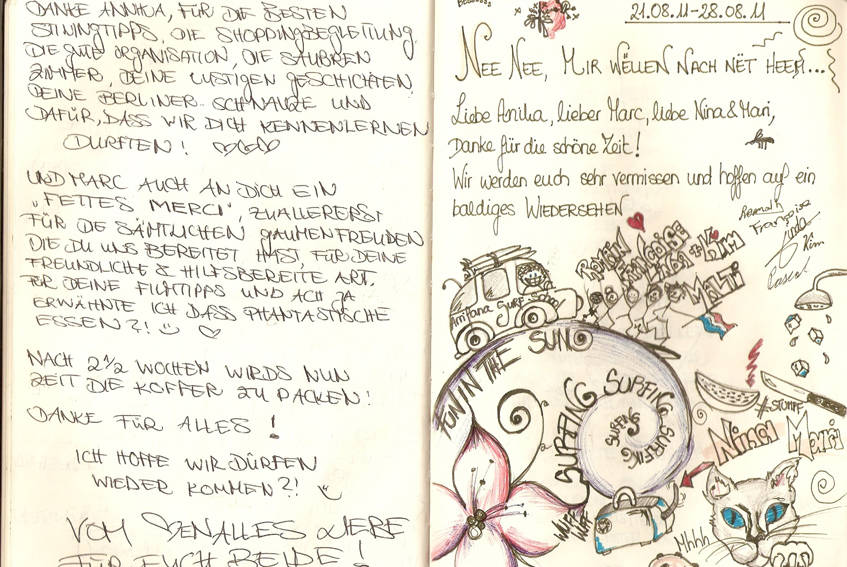 DANKE ANNIKA, FÜR DIE BESTEN
STININGTIPPS, DIE SHOPPINGBEGLEITUNG,
DIE GUTE ORGANISATION, DIE SAUBREN
ZIMMER, DEINE LUSTIGEN GESCHICHTEN,
DEINE BERLINER-SCHNAUZE UND
DAFÜR, DASS WIR DICH KENNENLERNEN
DURFTEN!
UND MARC AUCH AN DICH EIN
„FETTES MERCI", ZUALLERERST
FÜR DIE SÄMTLICHEN GAUMENFREUDEN
DIE DU UNS BEREITET HAST, FÜR DEINE
FREUNDLICHE & HILFSBEREITE ART,
FÜR DEINE FILMTIPPS UND ACH JA
ERWÄHNTE ICH DASS PHANTASTISCHE
ESSEN?!
NACH 2 1/2 WOCHEN WIRDS NUN
ZEIT DIE KOFFER ZU PACKEN!
DANKE FÜR ALLES!
ICH HOFFE WIR DÜRFEN
WIEDER KOMMEN?!
VOM ALLES LIEBE
FÜR EUCH BEIDE!
21.08.11-28.08.11
NEE NEE, MIR WËLLEN NACH NËT HEEM...
Liebe Anika, lieber Marc, liebe Nina & Mari,
Danke für die schöne Zeit!
Wir werden euch sehr vermissen und hoffen auf ein
baldiges WIEDERSEHEN
Françoise
Kim
FRANÇOISE
KIM
Surf School
FUN IN THE SUN
SURFING SURFING SURFING SURFING
SURFING
#STUMPF
Nina Mari
WUFF
WUFF
Mhhh